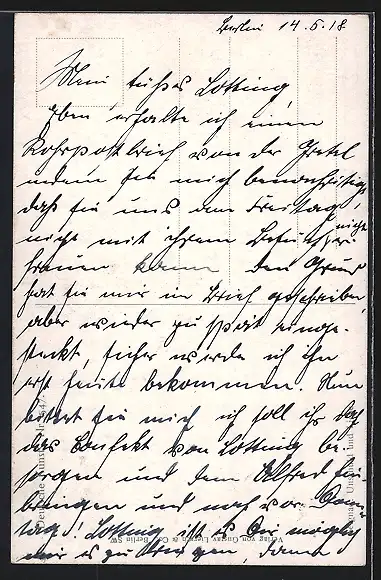 Berlin 14.5.18
Mein süßes Lotting!
Eben erhalte ich einen
Rohrpostbrief von der Gretel
indem sie mich benachrichtigt,
daß sie uns am Freitag
nicht mit ihrem Besuch er-
freuen kann den Grund
hat sie mir im Brief geschrieben,
aber wieder zu spät einge-
steckt, sicher werde ich ihn
erst heute bekommen. Nun
bittet sie mich ich soll ihr doch
das Konfekt von Lotting be-
sorgen und dem Alfred hin-
bringen und noch vor Sonn-
tag! Lotting ist es Dir möglich
mir es zu bringen, dann
Verlag von Gustav Liersch & Co. Berlin SW